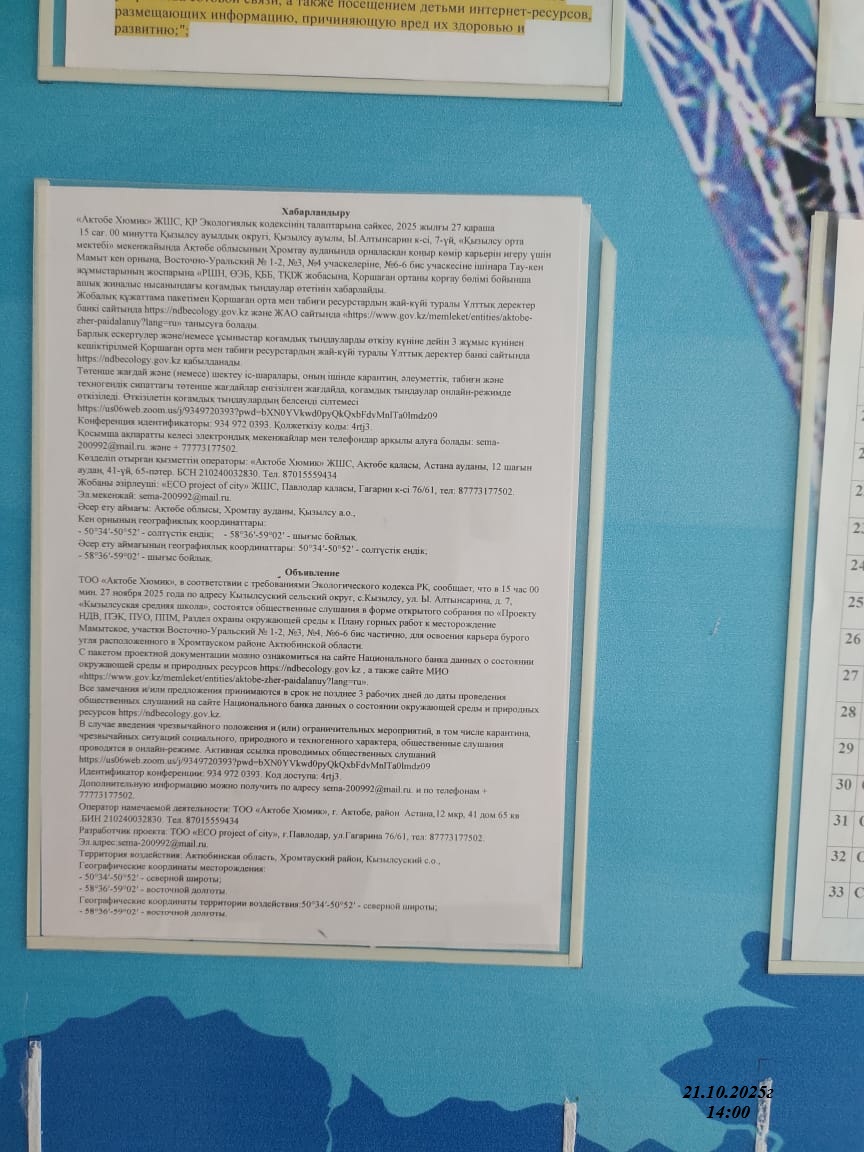 а также посещением детьми интернет-ресурсов,
размещающих информацию, причиняющую вред их здоровью и
развитию;";
Хабарландыру
«Актобе Хюмик» ЖШС, ҚР Экологиялық кодексінің талаптарына сәйкес, 2025 жылғы 27 қараша
15 сағ. 00 минутта Қызылсу ауылдық округі, Қызылсу ауылы, Ы.Алтынсарин к-сі, 7-үй, «Қызылсу орта
мектебі» мекенжайында Ақтөбе облысының Хромтау ауданында орналасқан қоңыр көмір карьерін игеру үшін
Мамыт кен орнына, Восточно-Уральский № 1-2, №3, №4 учаскелеріне, №6-6 бис учаскесіне ішінара Тау-кен
жұмыстарының жоспарына «РШН, ӨЭБ, ҚББ, ТҚІЖ жобасына, Қоршаған ортаны қорғау бөлімі бойынша
ашық жиналыс нысанындағы қоғамдық тыңдаулар өтетінін хабарлайды.
Жобалық құжаттама пакетімен Қоршаған орта мен табиғи ресурстардың жай-күйі туралы Ұлттық деректер
банкі сайтында https://ndbecology.gov.kz және ЖАО сайтында «https://www.gov.kz/memleket/entities/aktobe-
zher-paidalanuy?lang=ru» танысуға болады.
Барлық ескертулер және/немесе ұсыныстар қоғамдық тыңдауларды өткізу күніне дейін 3 жұмыс күнінен
кешіктірілмей Қоршаған орта мен табиғи ресурстардың жай-күйі туралы Ұлттық деректер банкі сайтында
https://ndbecology.gov.kz қабылданады.
Төтенше жағдай және (немесе) шектеу іс-шаралары, оның ішінде карантин, әлеуметтік, табиғи және
техногендік сипаттағы төтенше жағдайлар енгізілген жағдайда, қоғамдық тыңдаулар онлайн-режимде
өткізіледі. Өткізілетін қоғамдық тыңдаулардың белсенді сілтемесі
https://us06web.zoom.us/j/9349720393?pwd=bXN0YVkwd0pyQkQxbFdvMnlTa0lmdz09
Конференция идентификаторы: 934 972 0393. Қолжеткізу коды: 4rtj3.
Қосымша ақпаратты келесі электрондық мекенжайлар мен телефондар арқылы алуға болады: sema-
200992@mail.ru. және + 77773177502.
Көзделіп отырған қызметтің операторы: «Актобе Хюмик» ЖШС, Ақтөбе қаласы, Астана ауданы, 12 шағын
аудан, 41-үй, 65-пәтер. БСН 210240032830. Тел. 87015559434
Жобаны әзірлеуші: «ECO project of city» ЖШС, Павлодар қаласы, Гагарин к-сі 76/61, тел: 87773177502.
Эл.мекенжай: sema-200992@mail.ru.
Әсер ету аймағы: Ақтөбе облысы, Хромтау ауданы, Қызылсу а.о.,
Кен орнының географиялық координаттары:
- 50°34'-50°52' - солтүстік ендік; - 58°36'-59°02' - шығыс бойлық.
Әсер ету аймағының географиялық координаттары: 50°34'-50°52' - солтүстік ендік;
- 58°36'-59°02' - шығыс бойлық.
Объявление
ТОО «Актобе Хюмик», в соответствии с требованиями Экологического кодекса РК, сообщает, что в 15 час 00
мин. 27 ноября 2025 года по адресу Кызылсуский сельский округ, с.Кызылсу, ул. Ы. Алтынсарина, д. 7,
«Кызылсуская средняя школа», состоятся общественные слушания в форме открытого собрания по «Проекту
НДВ, ПЭК, ПУО, ППМ, Раздел охраны окружающей среды к Плану горных работ к месторождение
Мамытское, участки Восточно-Уральский № 1-2, №3, №4, №6-6 бис частично, для освоения карьера бурого
угля расположенного в Хромтауском районе Актюбинской области.
С пакетом проектной документации можно ознакомиться на сайте Национального банка данных о состоянии
окружающей среды и природных ресурсов https://ndbecology.gov.kz , а также сайте МИО
«https://www.gov.kz/memleket/entities/aktobe-zher-paidalanuy?lang=ru».
Все замечания и/или предложения принимаются в срок не позднее 3 рабочих дней до даты проведения
общественных слушаний на сайте Национального банка данных о состоянии окружающей среды и природных
ресурсов https://ndbecology.gov.kz.
В случае введения чрезвычайного положения и (или) ограничительных мероприятий, в том числе карантина,
чрезвычайных ситуаций социального, природного и техногенного характера, общественные слушания
проводятся в онлайн-режиме. Активная ссылка проводимых общественных слушаний
https://us06web.zoom.us/j/9349720393?pwd=bXN0YVkwd0pyQkQxbFdvMnlTa0lmdz09
Идентификатор конференции: 934 972 0393. Код доступа: 4rtj3.
Дополнительную информацию можно получить по адресу sema-200992@mail.ru. и по телефонам +
77773177502.
Оператор намечаемой деятельности: ТОО «Актобе Хюмик», г. Актобе, район Астана,12 мкр, 41 дом 65 кв
.БИН 210240032830. Тел. 87015559434
Разработчик проекта: ТОО «ECO project of city», г.Павлодар, ул.Гагарина 76/61, тел: 87773177502.
Эл.адрес:sema-200992@mail.ru.
Территория воздействия: Актюбинская область, Хромтауский район, Кызылсуский с.о.,
Географические координаты месторождения:
- 50°34'-50°52' - северной широты;
- 58°36'-59°02' - восточной долготы.
Географические координаты территории воздействия:50°34'-50°52' - северной широты;
- 58°36'-59°02' - восточной долготы.
24
25
26
27
28
29
30
31
32
33
21.10.2025г
14:00